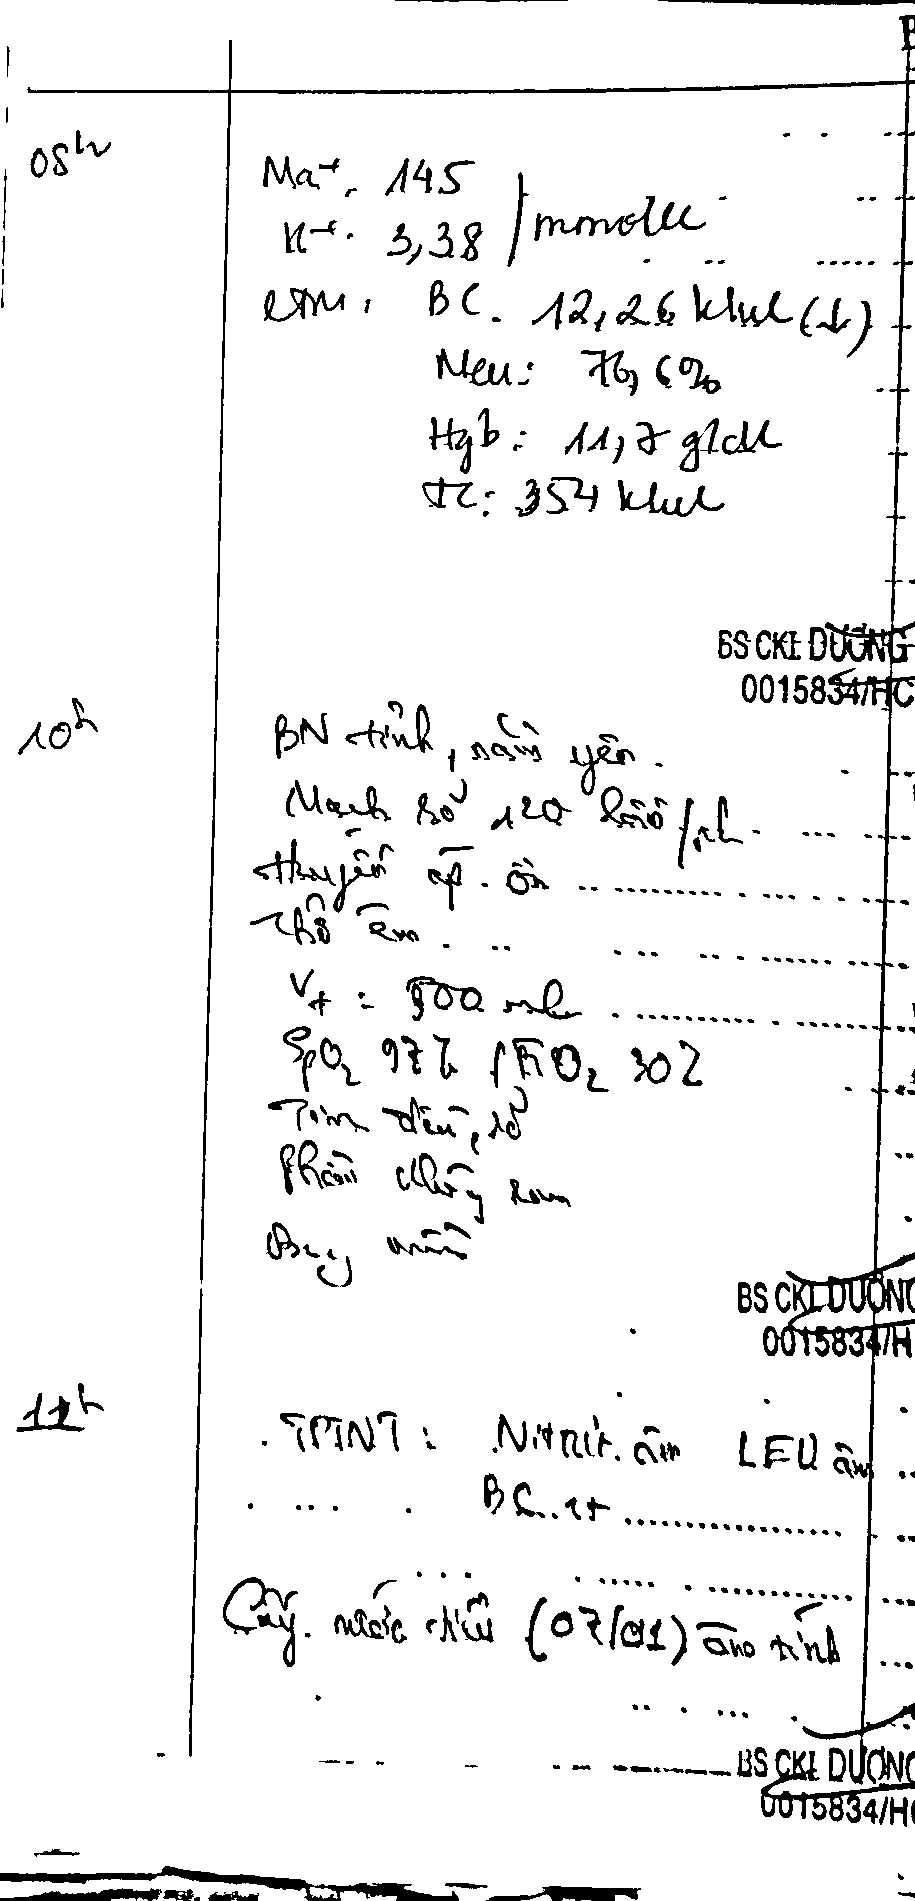 08h
Na+. 145
K+. 3,38 /mmol/L
CTM: BC. 12,26 k/uL (↓)
Neu: 76,6%
Hgb: 11,7 g/dL
TC: 354 k/uL
BS CKI. DƯƠNG
0015834/HC
10h
BN tỉnh, nằm yên.
Mạch rõ 120 lần/ph
Huyết áp. ổn
Thở êm.
Vt = 500 ml
SpO2 97% / FiO2 30%
Tim đều, rõ
Phổi không ran
Bụng mềm
BS CKI. DƯƠNG
0015834/H
11h
TPTNT: Nitrit. âm LEU âm
BC.
Cấy. nước tiểu (07/01) âm tính
BS CKI. DƯƠNG
0015834/H